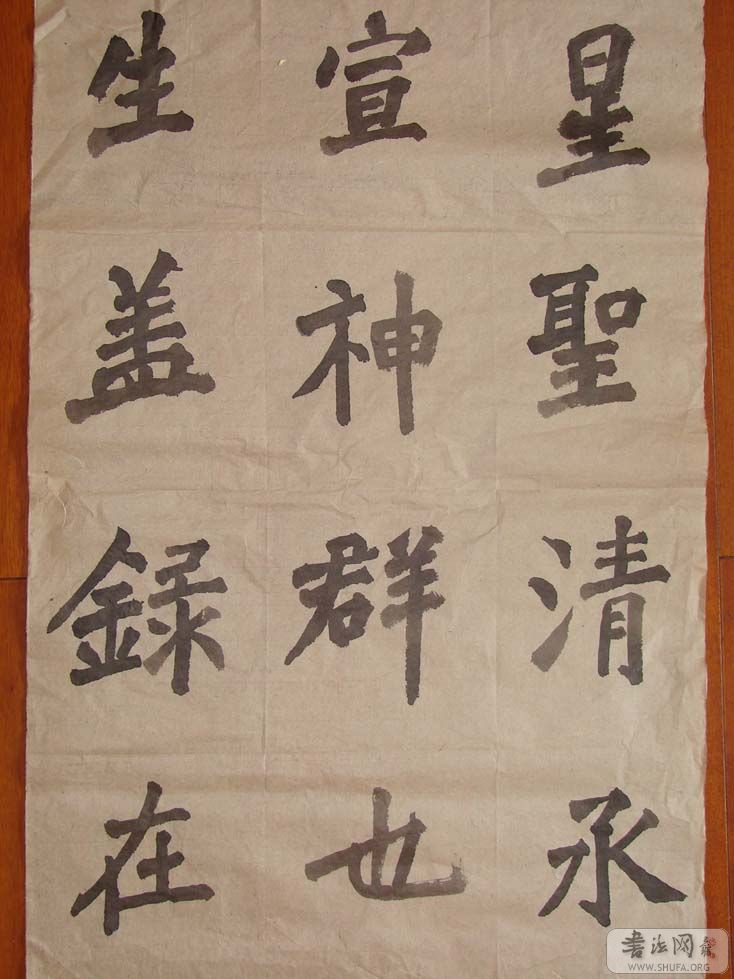 星聖清承
宣神群也
生盖錄在
書法网
WWW.SHUFA.ORG